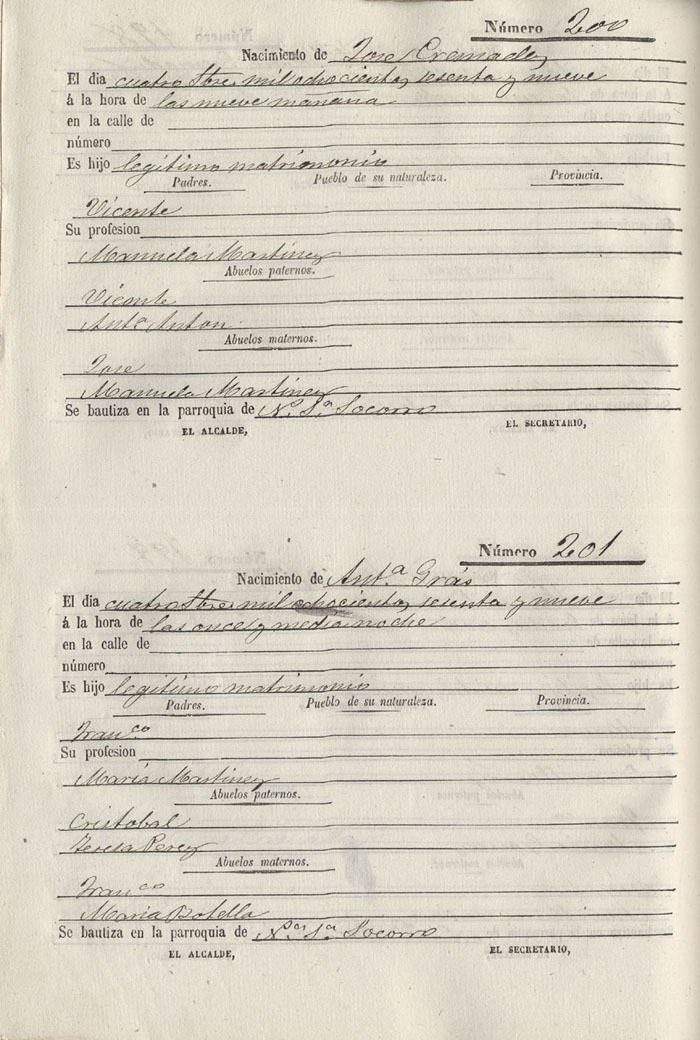 Número 200
Nacimiento de Jose Cremades
El dia cuatro Sbre. mil ochocientos sesenta y nueve
á la hora de las nueve mañana
en la calle de
número
Es hijo legítimo matrimonio
Padres. Pueblo de su naturaleza. Provincia.
Vicente
Su profesion
Manuela Martinez
Abuelos paternos.
Vicente
Antª Anton
Abuelos maternos.
Jose
Manuela Martinez
Se bautiza en la parroquia de Nª Sª Socorro
EL ALCALDE, EL SECRETARIO,
Número 201
Nacimiento de Antª Grás
El dia cuatro Sbre. mil ochocientos sesenta y nueve
á la hora de las once y media noche
en la calle de
número
Es hijo legítimo matrimonio
Padres. Pueblo de su naturaleza. Provincia.
Franco
Su profesion
María Martinez
Abuelos paternos.
Cristobal
Teresa Perez
Abuelos maternos.
Franco
María Botella
Se bautiza en la parroquia de Nª Sª Socorro
EL ALCALDE, EL SECRETARIO,